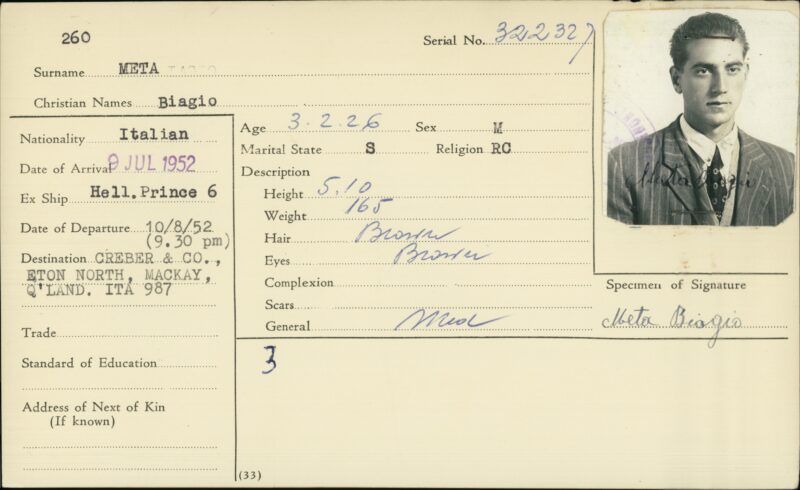 260
Serial No. 322327
Surname META
Christian Names Biagio
Nationality Italian
Date of Arrival 9 JUL 1952
Ex Ship Hell. Prince 6
Date of Departure 10/8/52
(9.30 pm)
Destination CREBER & CO.,
ETON NORTH, MACKAY,
Q'LAND. ITA 987
Trade
Standard of Education
Address of Next of Kin
(If known)
Age 3.2.26 Sex M
Marital State S Religion RC
Description
Height 5.10
Weight 165
Hair Brown
Eyes Brown
Complexion
Scars
General Med
3
(33)
Meta Biagio
Specimen of Signature
Meta Biagio